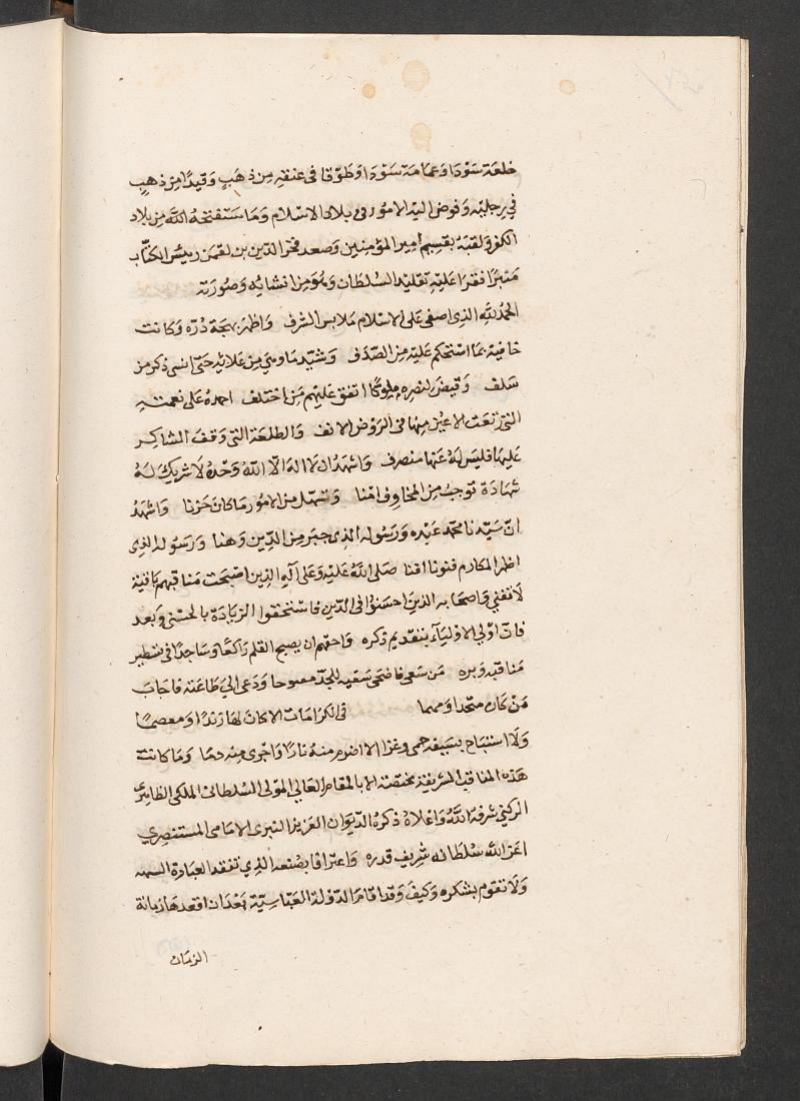 خلعة سَوْدَا وَعمَامَة سَوْدَا وَطَوْقا فى عنقهِ مِن ذهَبٍ وَقيدًا مِن ذهبٍ
فى رجليْه وَفوض اليْه الامُور فى بلاد الاسْلام وَمَا سَتفتحهُ اللّه من بلاد
الكفر وَلقبَهُ بقسِيْم اميْر المؤمنين وَصعد فخر الدّين بن لقمن رييسُ الكتّاب
مَنبرًا فقرَا عَليْهِ تقليْد السُلطان وَهُوَ مِن انشائِه وَصُورَته
الحمدُ للّهِ الذِى اصفى عَلى الاسْلام مَلابسَ الشرف وَاظهَر بهجَة دُرّه وَكانت
خافيَة بمَا استحكم عَليْه مِن الصّدَف وَشيّد مَا وهيَ مِن عَلائِه حَتى انسى ذكر من
سَلف وَقيضَ لنصرهِ ملوكًا اتفق عَليْهم مَن اختلف احمدهُ عَلى نعمتِه
التى رَتعَت الاعيُن مِنهَا فى الرَوْض الانف وَالطلعَة التى وَقفَ الشاكِر
عَليهَا فليسَ لهُ عَنها منصرف وَاشهَدُ ان لا اله الّا اللّه وَحْدهُ لَا شريكَ لهُ
شهَادَة توجبُ مِن المخاوف امْنا وَتسَهّل من الامُور مَا كانَ حَزْنا وَاشهَدُ
انّ سَيّدنا محمّد عَبْده وَرَسُوله الذِى جبَر مِن الدِّين وَهنا وَرَسُوله الذِى
اظهر المكارم فنونا افنا صَلى اللّهُ عَليْهِ وَعَلى آلهِ الذين اصْبَحَت مَناقبهم باقية
لَا تفنى وَاصحَابه الذينَ احسَنوُا فى الدّين فاستحَقوا الزيَادَة بالحسْنى وَبعد
فانّ اوْلى الاوْليَاءَ بتقديم ذكره وَاحقّهم ان يصبح القلم رَاكعًا وَساجدًا فى تسْطير
مَناقبه وَبره مَن سَعى فاضحَى سَعْيه للجدّ وَدَعى الى طاعَته فاجَابَ
مَن كان متحدا وَمهما فى المكرَامَات الا كانَ لهَا زَندًا وَمعصمًا
وَلَا استبَاح بسَيفه حمى وغزا الا اضرم منهُ نارًا وَاجْرى مِنه دمَا وَمَا كانت
هَذه المناقبُ الشريفة مختصّة الا بالمقام العَالى الموْلى السُلطانى الملكى الظاهِرى
الركنى شرفهُ اللّهُ وَاعْلاهُ ذكرهُ الدّيوَان العَزيز النبوى الامَامى المستنصِرى
اعَز اللّه سُلطانه شرِيف قدره وَاعترَافا بصُنعه الذِى تنفد العبَارة
وَلَا تقوم بشكره وَكيفَ وَقد اقام الدّوْلة العَبّاسِيّة بَعْدَ ان اقعدهَا زمانة
الزمَان